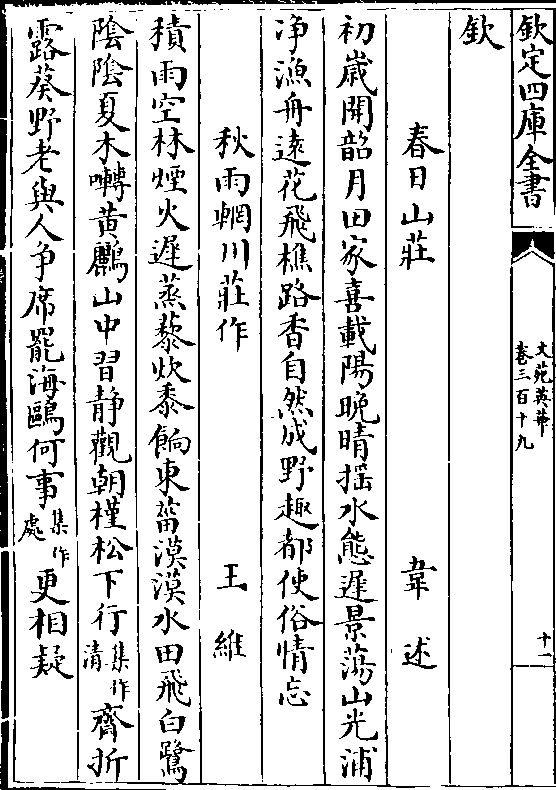 欽定四庫全書
文苑英華
卷三百十九
十一
欽
春日山莊
韋述
初歲開韶月田家喜載陽晚晴揺水態遲景蕩山光浦
净漁舟遠花飛樵路香自然成野趣都使俗情忘
秋雨輞川莊作
王維
積雨空林煙火遲蒸藜炊黍餉東菑漠漠水田飛白鷺
陰陰夏木囀黄鸝山中習静觀朝槿松下行集作清齋折
露葵野老與人争席罷海鷗何事集作處更相疑